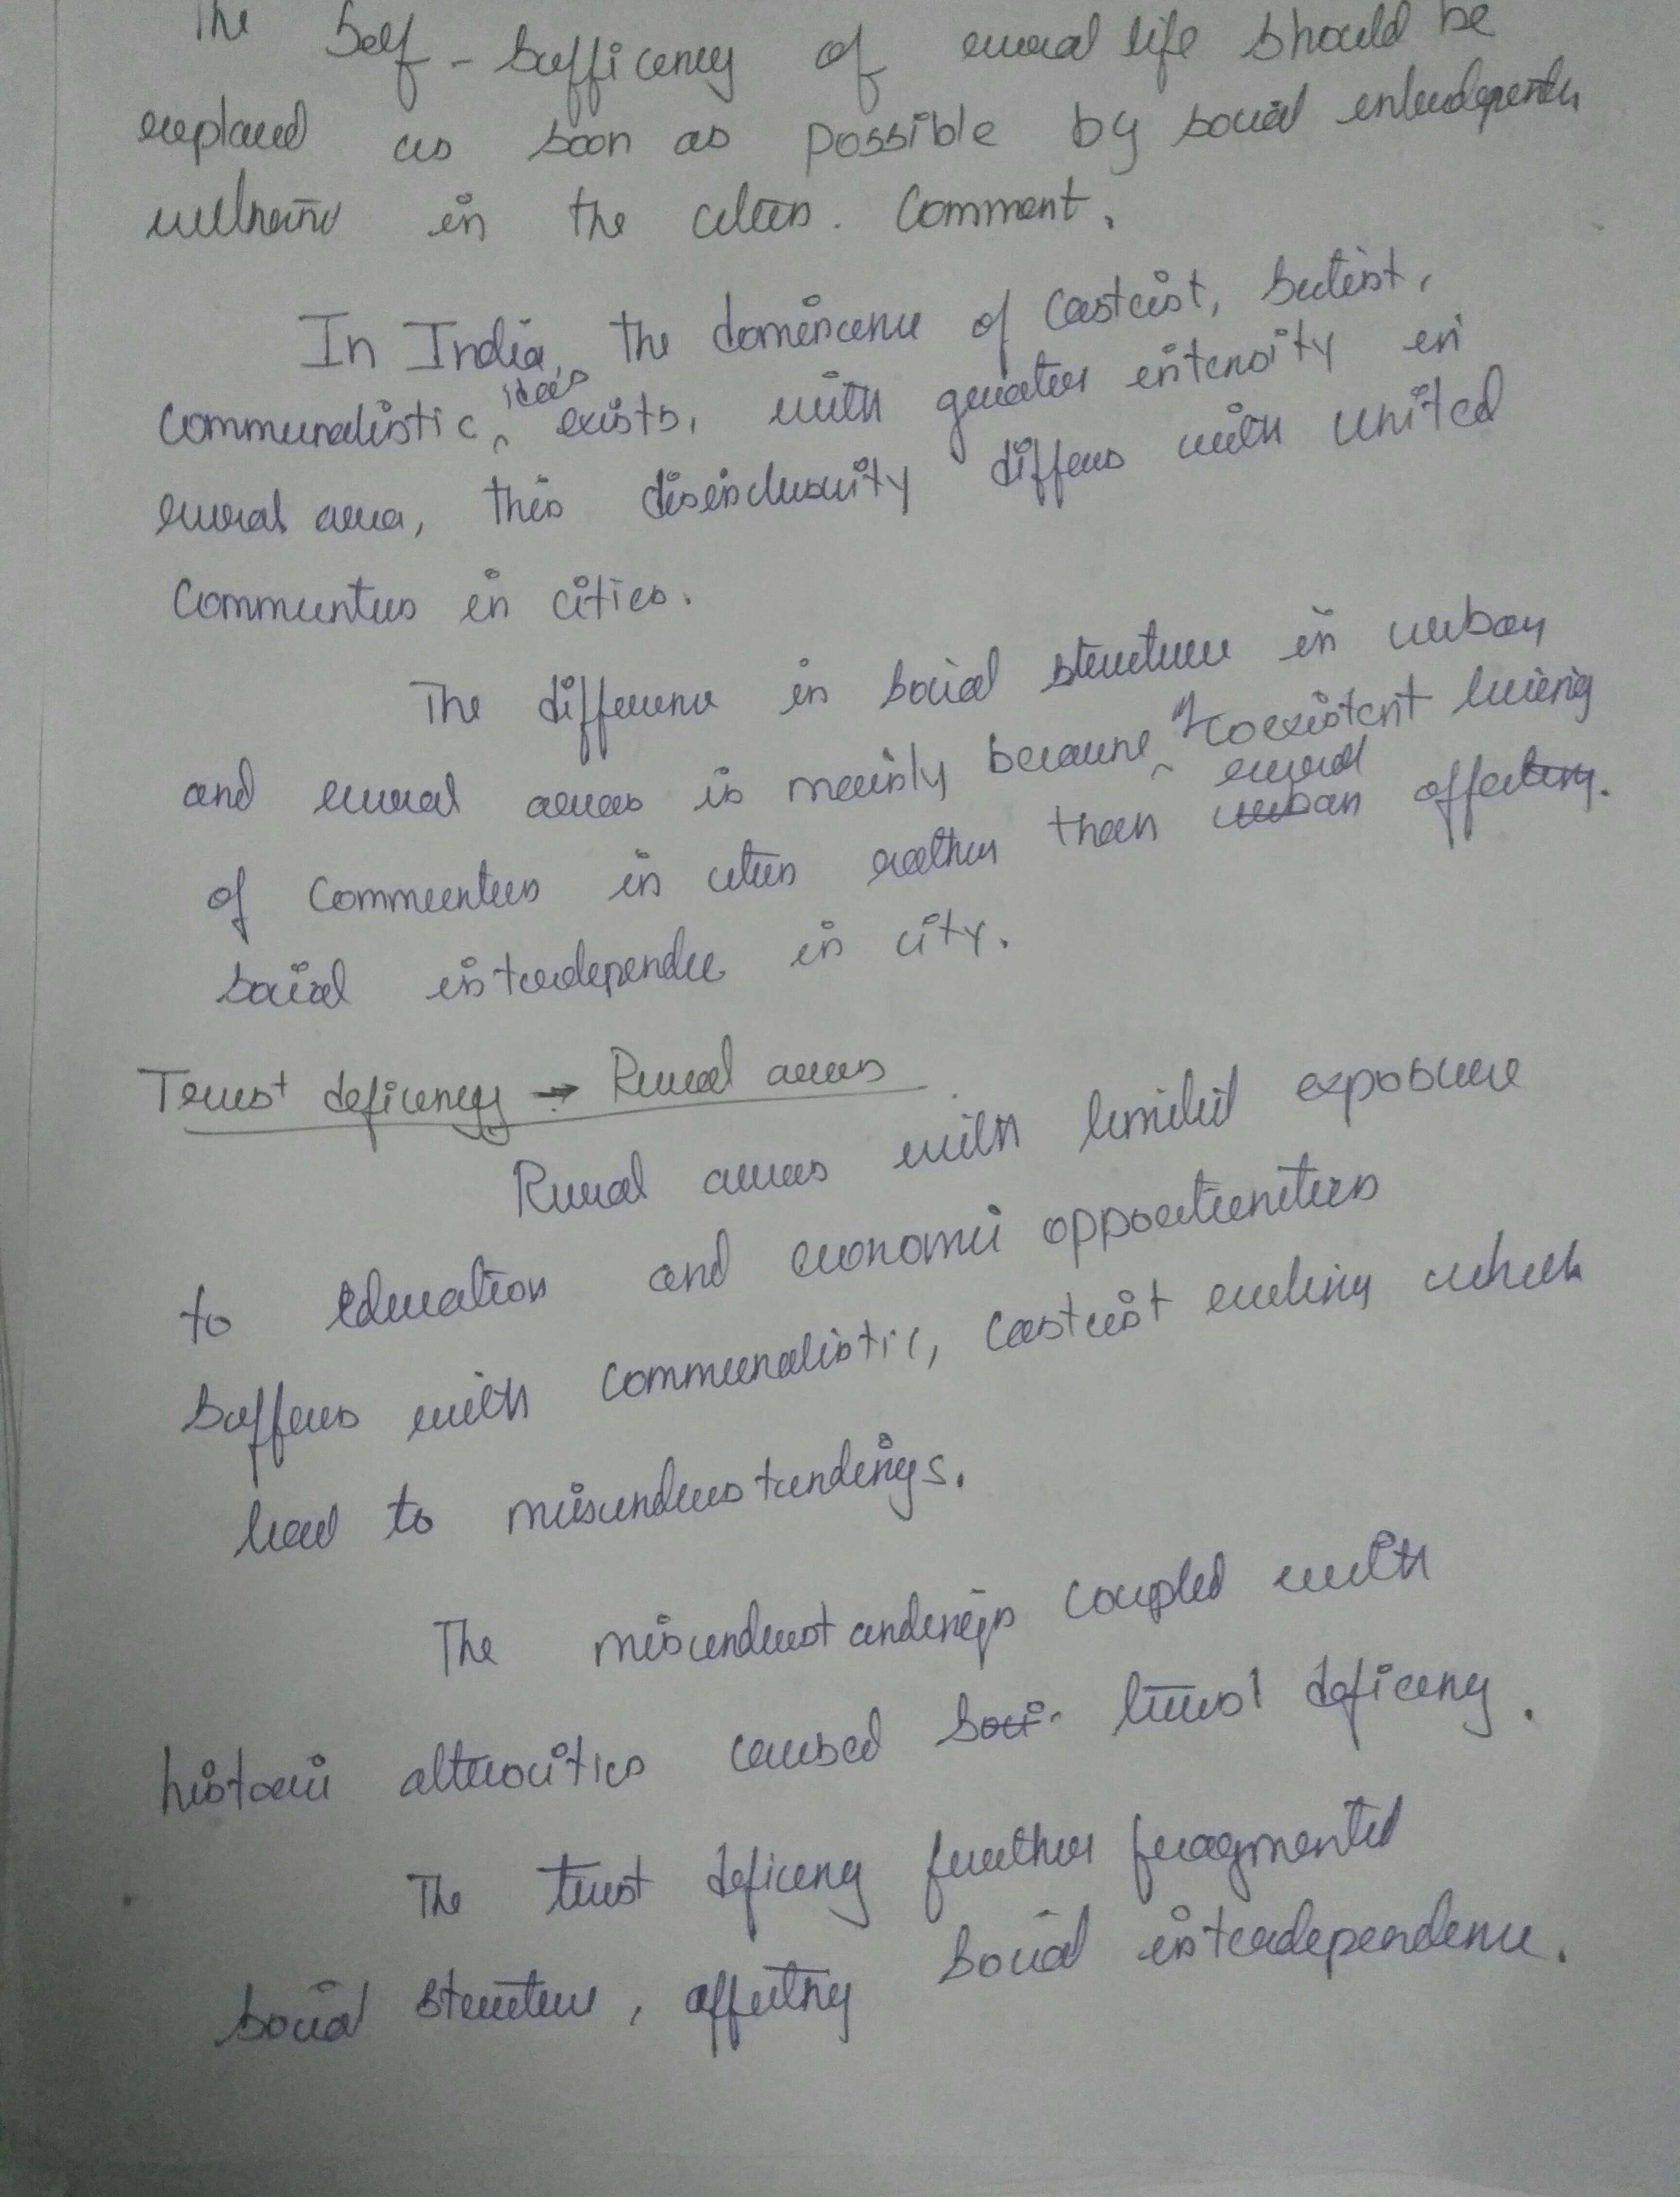 The Self-Sufficency of rural life should be
replaced as soon as possible by social
in the cities. Comment.
In India, the dominance of Casteist, Sectist,
Communalistic ideas exists, with greater intensity in
rural area, this disinclusivity differs with united
Communties in cities.
The difference in social structure in urban
and rural areas is mainly because of coexistent living
of Communties in cities rather than rural urban affecting.
social interdependce in city.
Trust deficency → Rural areas
Rural areas with limited exposure
to Education and economic opportunities
suffers with communalistic, casteist ruling which
lead to misunderstandings.
The misunderstandings coupled with
historic altrocities caused soci trust deficency.
The trust deficeny further fragmented
social structure, affecting social interdependence.